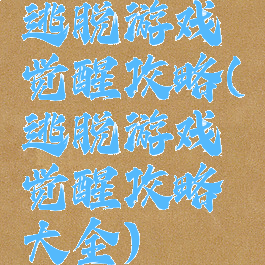 逃脱游戏
觉醒攻略(
逃脱游戏
觉醒攻略
大全)